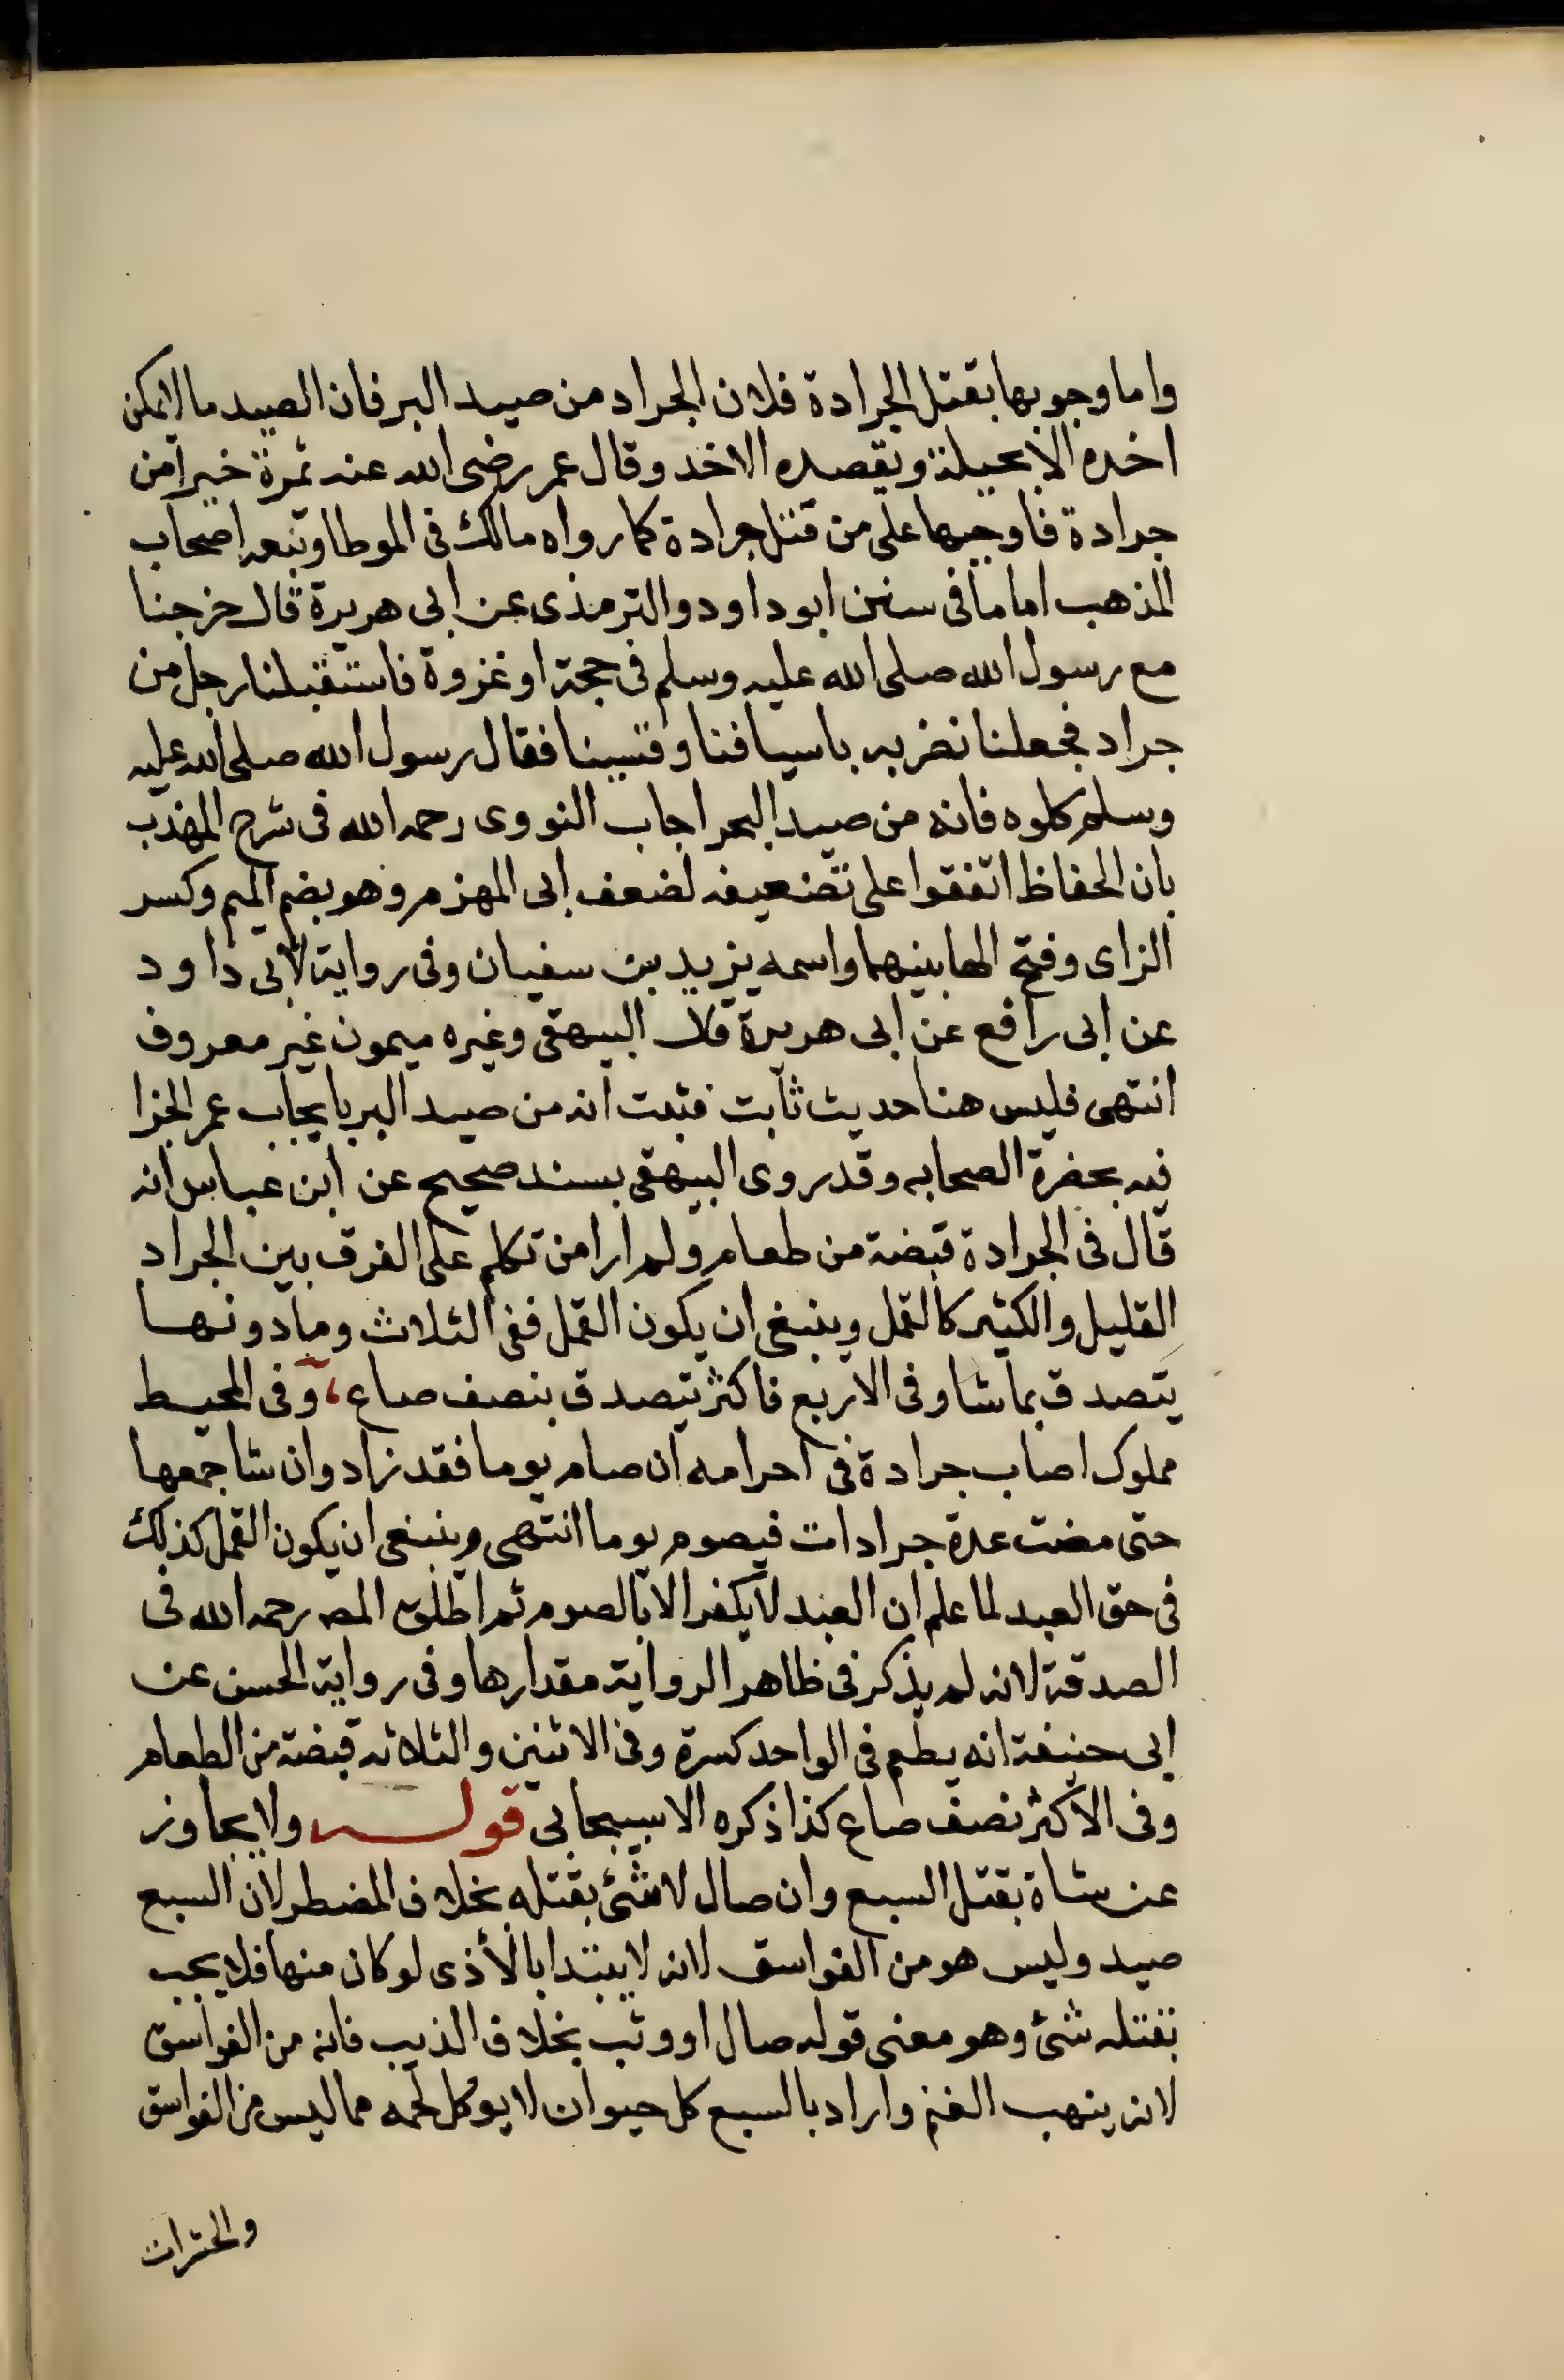 واما وجوبها بقتل الجرادة فلان الجراد من صيد البر فان الصيد ما لا يمكن
اخده الا بحيلة ويقصده الاخد وقال عمر رضى الله عنه تمرة خيرا من
جرادة فاوجبها على من قتل جرادة كما رواه مالك فى الموطا وتبعه اصحاب
المذهب اما ما فى سنن ابو داود والترمذى عن ابى هريرة قال خرجنا
مع رسول الله صلى الله عليه وسلم فى حجة او غزوة فاستقبلنا رجل من
جراد فجعلنا نضربه باسيافنا وقسينا فقال رسول الله صلى الله عليه
وسلم كلوه فانه من صيد البحر اجاب النووى رحمه الله فى شرح المهذب
بان الحفاظ اتفقوا على تضعيفه لضعف ابى المهزم وهو بضم الميم وكسر
الزاى وفتح الها بينهما واسمه يزيد بن سفيان وفى رواية لابى داود
عن ابى رافع عن ابى هريرة قال البيهقى وغيره ميمون غير معروف
انتهى فليس هنا حديث ثابت فثبت انه من صيد البر بايجاب عمر الجزا
فيه بحضرة الصحابه وقد روى البيهقى بسند صحيح عن ابن عباس انه
قال فى الجرادة قبضة من طعام ولم ارا من تكلم على الفرق بين الجراد
القليل والكثير كالقمل وينبغى ان يكون القمل ففى الثلاث وما دونها
يتصدق بما شا وفى الاربع فاكثر يتصدق بنصف صاع، وفى المحيط
مملوك اصاب جرادة فى احرامه ان صام يوما فقد زاد وان شا جمعها
حتى مضت عدة جرادات فيصوم يوما انتهى وينبغى ان يكون القمل كذلك
فى حق العبد لما علم ان العبد لا يكفر الا بالصوم ثم اطلق المصـ رحمه الله فى
الصدقة لانه لم يذكر فى ظاهر الرواية مقدارها وفى رواية الحسن عن
ابى حنيفة انه يطعم فى الواحد كسرة وفى الاثنين والثلاثه قبضة من الطعام
وفى الاكثر نصف صاع كذا ذكره الاسبيجابى قولـه ولا يجاوز
عن شاة بقتل السبع وان صال لا شئ بقتله بخلاف المضطر لان السبع
صيد وليس هو من الفواسق لانه لا يبتدا بالأذى لو كان منها فلا يجب
بقتله شئ وهو معنى قوله صال او وثب بخلاف الذيب فانه من الفواسق
لانه ينهب الغنم واراد بالسبع كل حيوان لا يوكل لحمه مما ليس من الفواسق
والحشرات